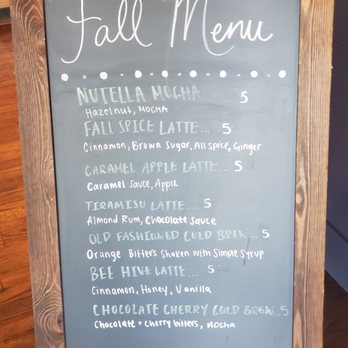 Fall Menu
NUTELLA MOCHA ... 5
Hazelnut, MOCHA
FALL SPICE LATTE... 5
Cinnamon, Brown Sugar, All Spice, Ginger
CARAMEL APPLE LATTE... 5
Caramel Sauce, Apple
TIRAMISU LATTE... 5
Almond Rum, Chocolate Sauce
OLD FASHIONED COLD BREW... 5
Orange Bitters Shaken with Simple Syrup
BEE HIVE LATTE... 5
Cinnamon, Honey, Vanilla
CHOCOLATE CHERRY COLD BREW...5
Chocolate + Cherry bitters, Mocha